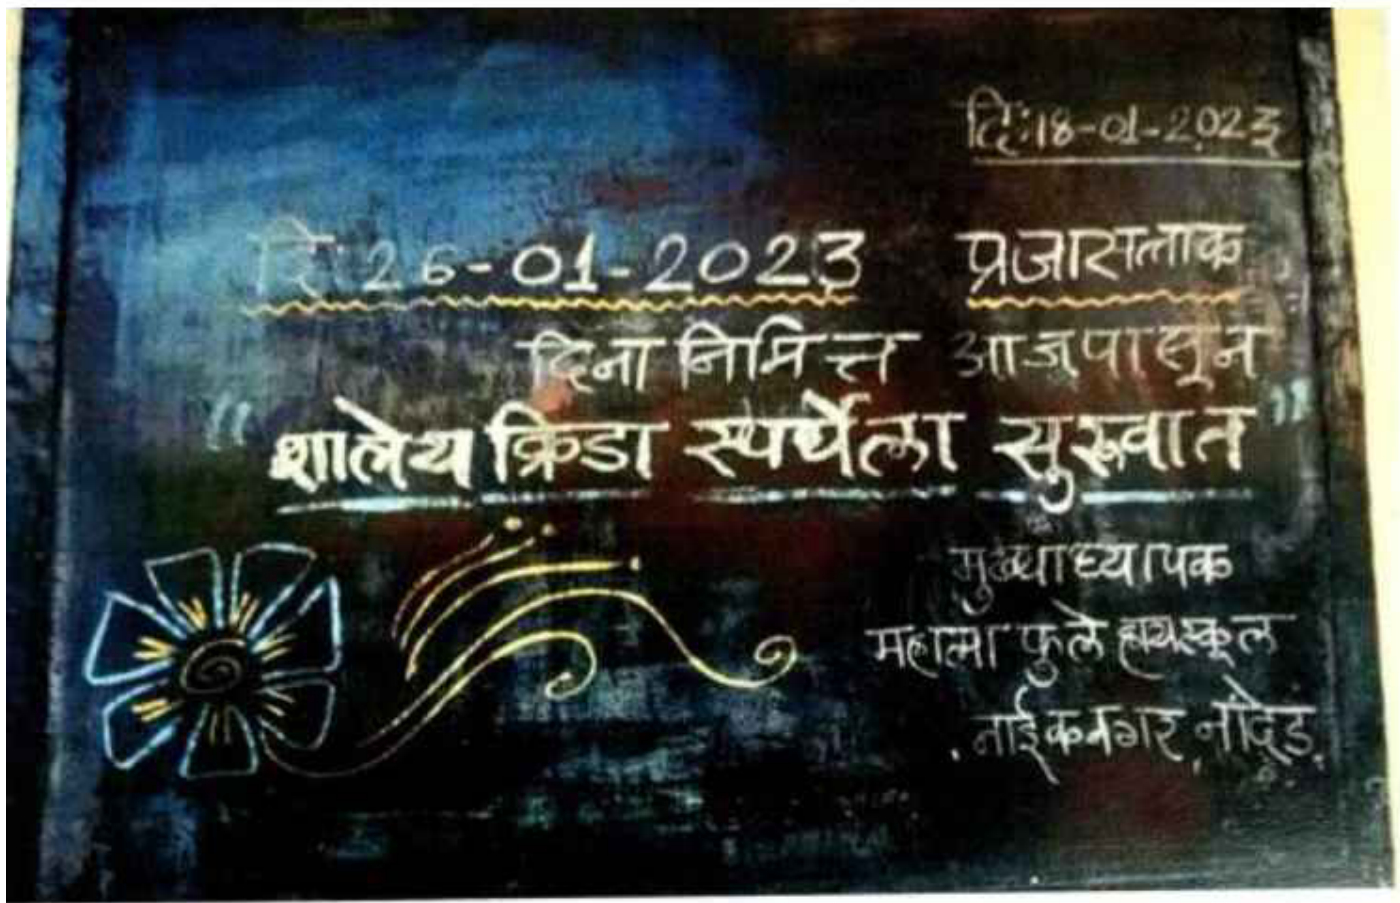 दि:18-01-2023
दि: 26-01-2023 प्रजासत्ताक
दिना निमित्त आजपासून
"शालेय क्रिडा स्पर्धेला सुरूवात"
मुख्याध्यापक
महात्मा फुले हायस्कूल
नाईकनगर नांदेड.